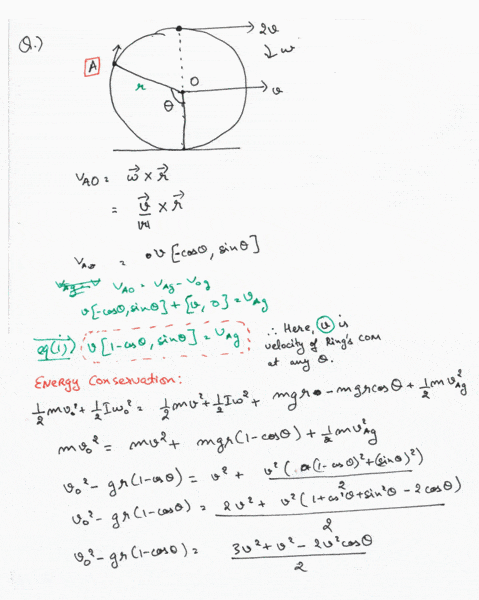 Q.)
2v
ω
A
r
O
v
θ
V_AO = ω⃗ × r⃗
= v⃗/|r| × r⃗
V_AO = v[-cosθ, sinθ]
V_AO = V_Ag - V_Og
v[-cosθ, sinθ] + [v, 0] = V_Ag
eq(1) v[1-cosθ, sinθ] = V_Ag
∴ Here, v is
velocity of Ring's COM
at any θ.
ENERGY CONSERVATION:
1/2 mv₀² + 1/2 Iω₀² = 1/2 mv² + 1/2 Iω² + mgr - mgrcosθ + 1/2 m v²_Ag
mv₀² = mv² + mgr(1-cosθ) + 1/2 mv²_Ag
v₀² - gr(1-cosθ) = v² + v²((1-cosθ)² + (sinθ)²)/2
v₀² - gr(1-cosθ) = 2v² + v²(1+cos²θ+sin²θ - 2cosθ)/2
v₀² - gr(1-cosθ) = 3v² + v² - 2v²cosθ/2